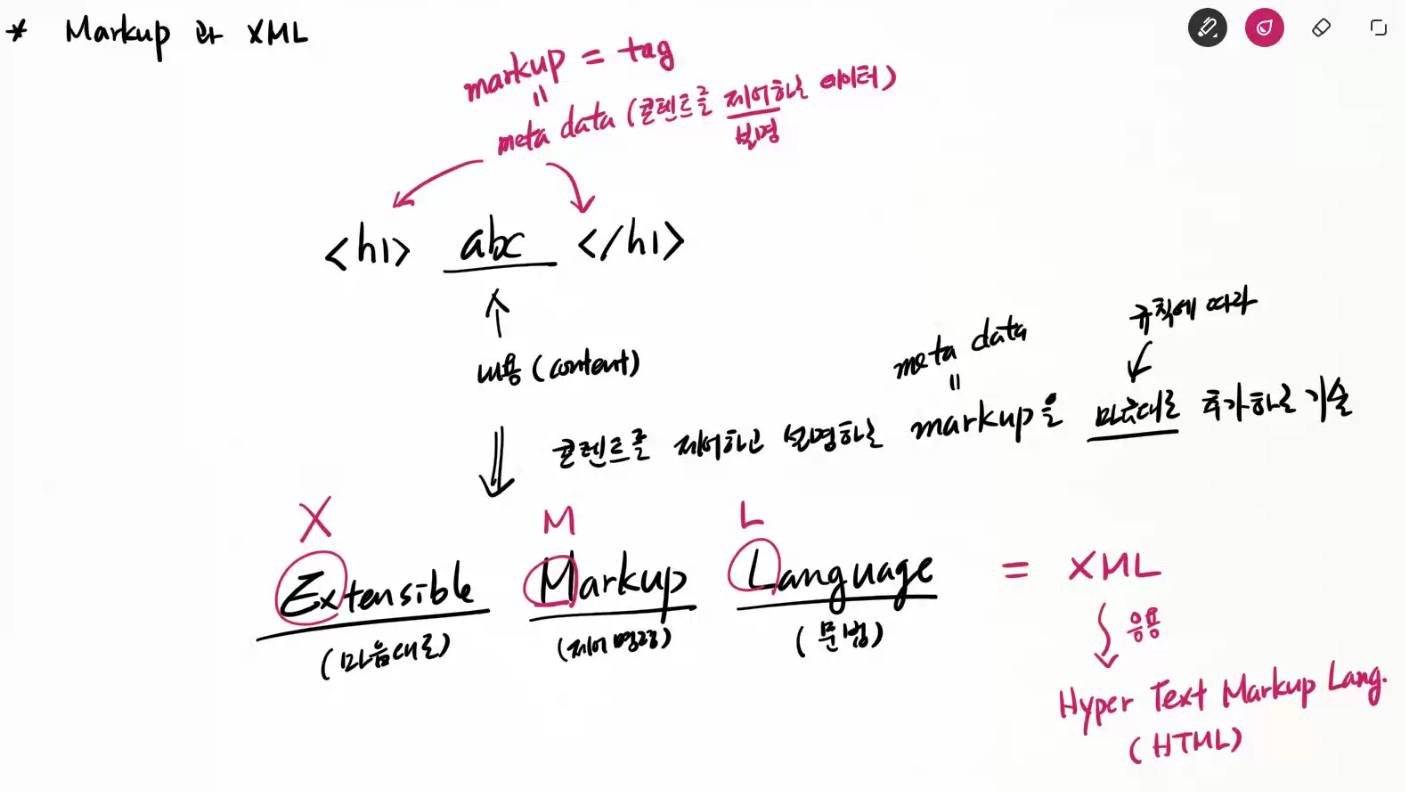 * Markup 과 XML
markup = tag
=
meta data (콘텐트를 제어하는 데이터)
설명
<h1> abc </h1>
내용 (content)
규칙에 따라
meta data
=
콘텐트를 제어하고 설명하는 markup을 마음대로 추가하는 기술
X M L
Extensible Markup Language = XML
(마음대로) (제어 명령) (문법)
응용
Hyper Text Markup Lang.
(HTML)